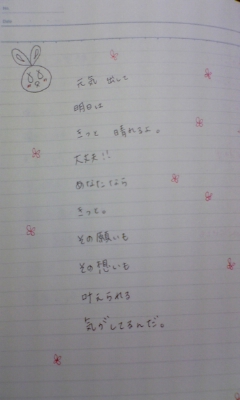 元気 出して
明日は
きっと 晴れるよ。
大丈夫!!
あなたなら
きっと。
その願いも
その想いも
叶えられる
気がしてるんだ。